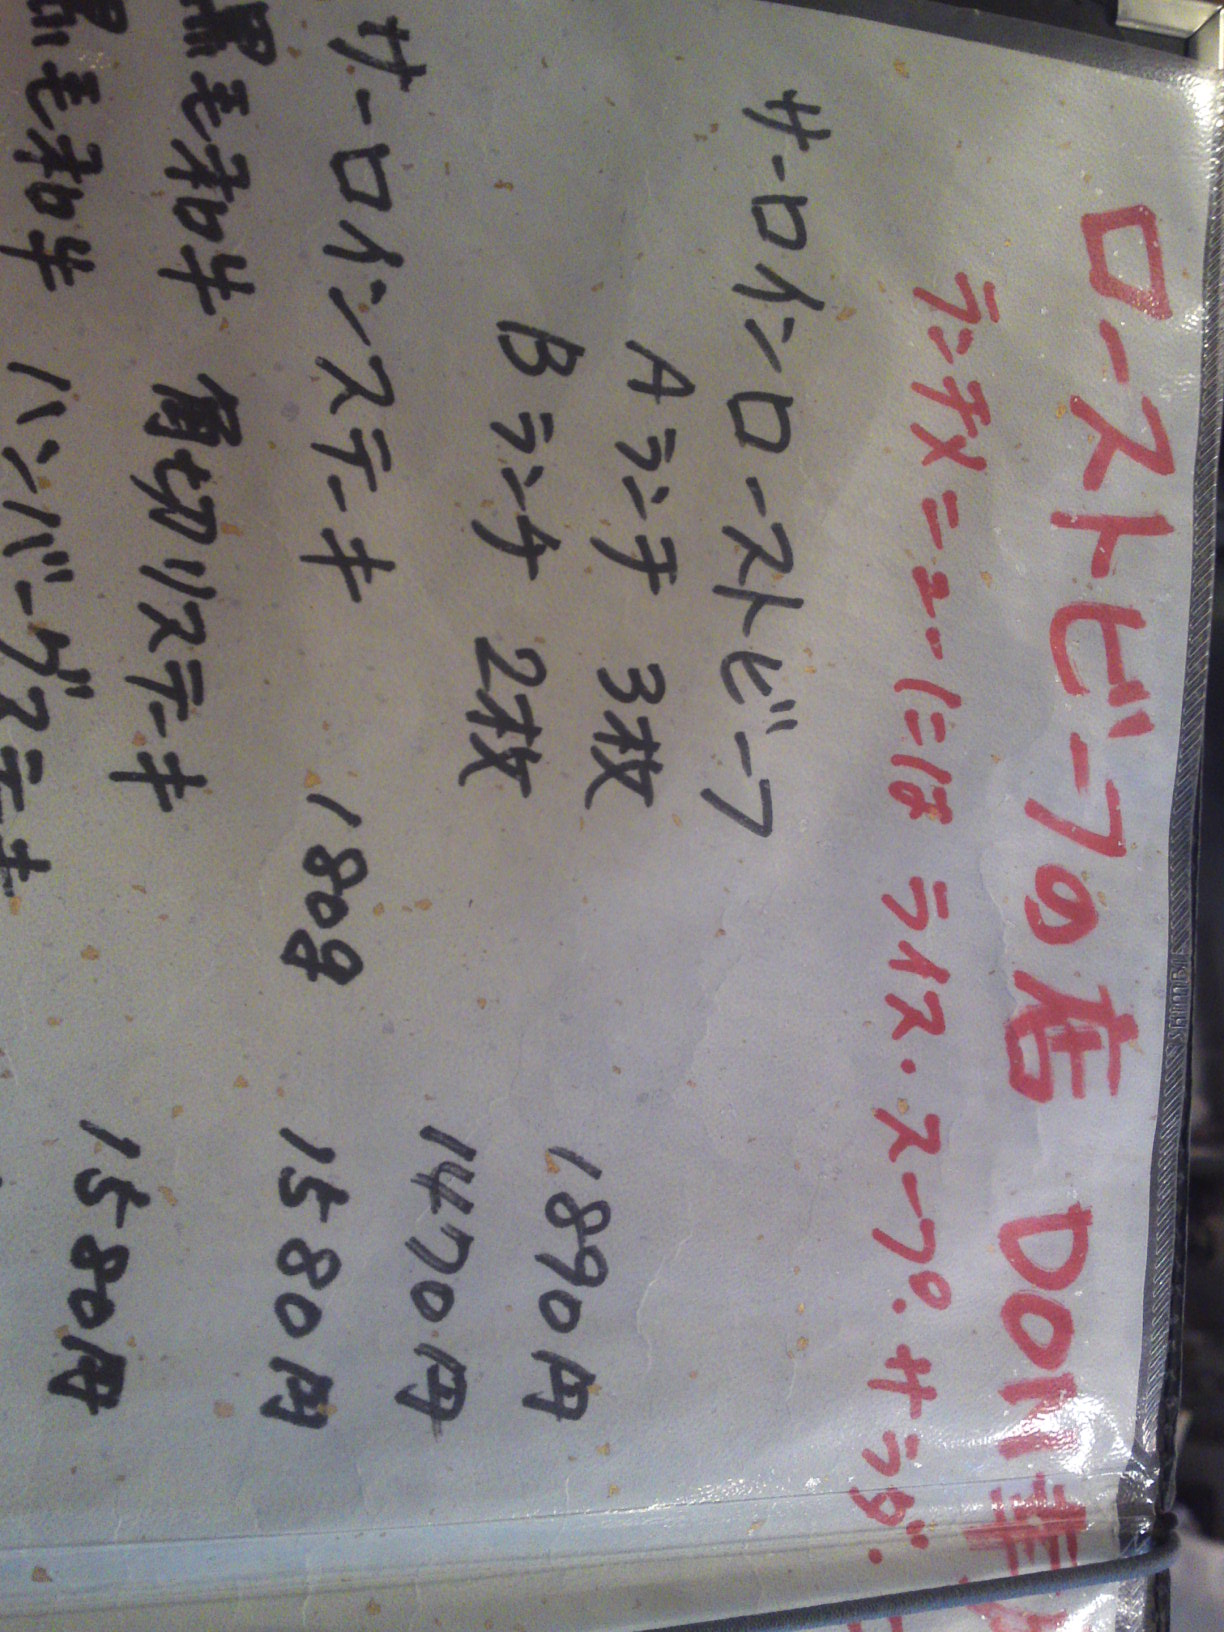 ローストビーフの店 DON
ランチメニューには ライス・スープ・サラダ・
サーロインローストビーフ
Aランチ 3枚 1890円
Bランチ 2枚 1470円
サーロインステーキ 180g 1580円
黒毛和牛 角切りステーキ 1580円
黒毛和牛 ハンバーグステーキ